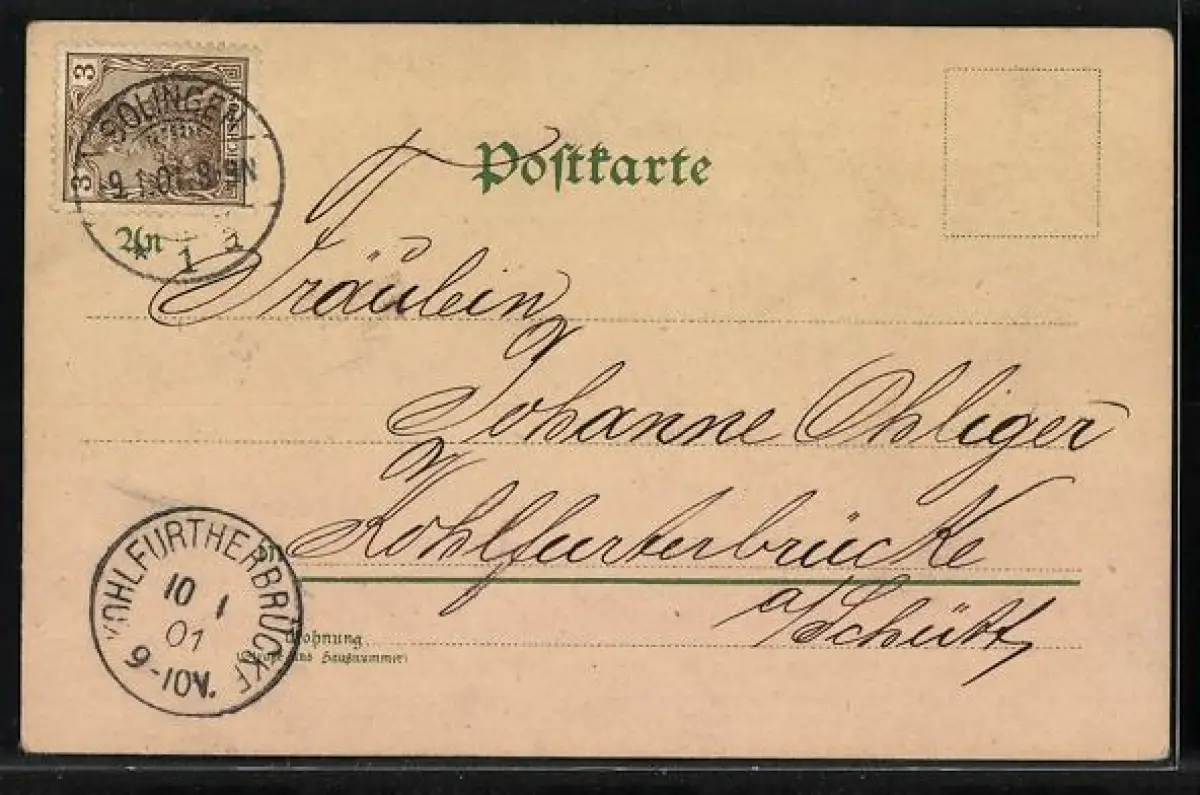 3
3
REICHSPOST
SOLINGEN
9.1.01. 8-9N
* 1 a
Postkarte
An
Fräulein
Johanne Ohliger
Kohlfurterbrücke
a/Schütt,
KOHLFURTHERBRÜCKE
10 1
01
9-10V.
Wohnung
und Hausnummer